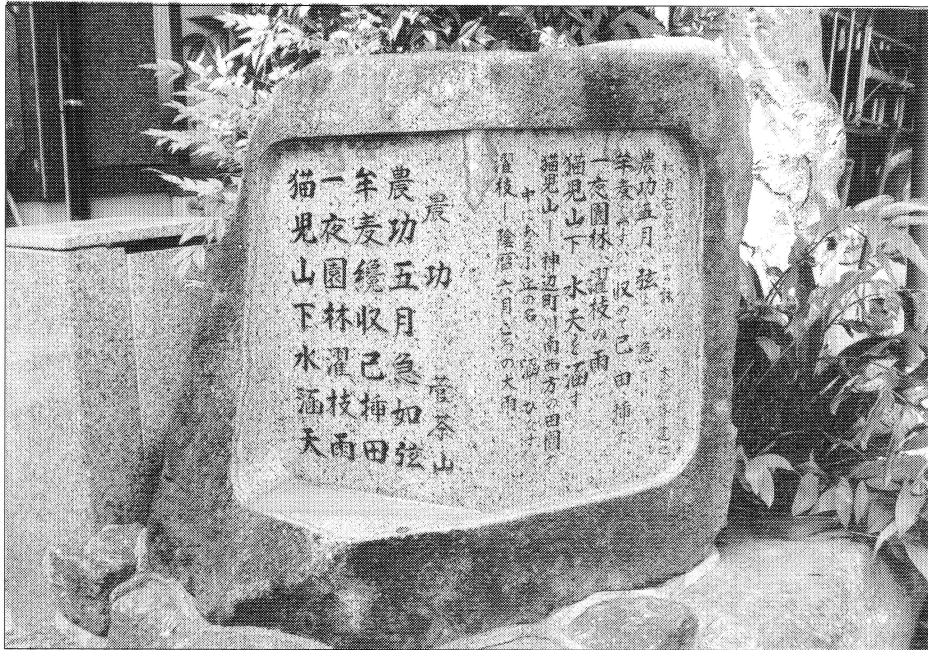 農功五月 弦 急
牟麦 収めて已 田 挿す
一夜園林 濯枝の雨
猫児山下 水天を涵す
猫児山ー神辺町川南西方の田園
中にある小丘の名 涵 ひたす
濯枝ー陰暦六月ころの大雨
農功 菅茶山
農功五月急如弦
牟麦纔収已挿田
一夜園林濯枝雨
猫児山下水涵天